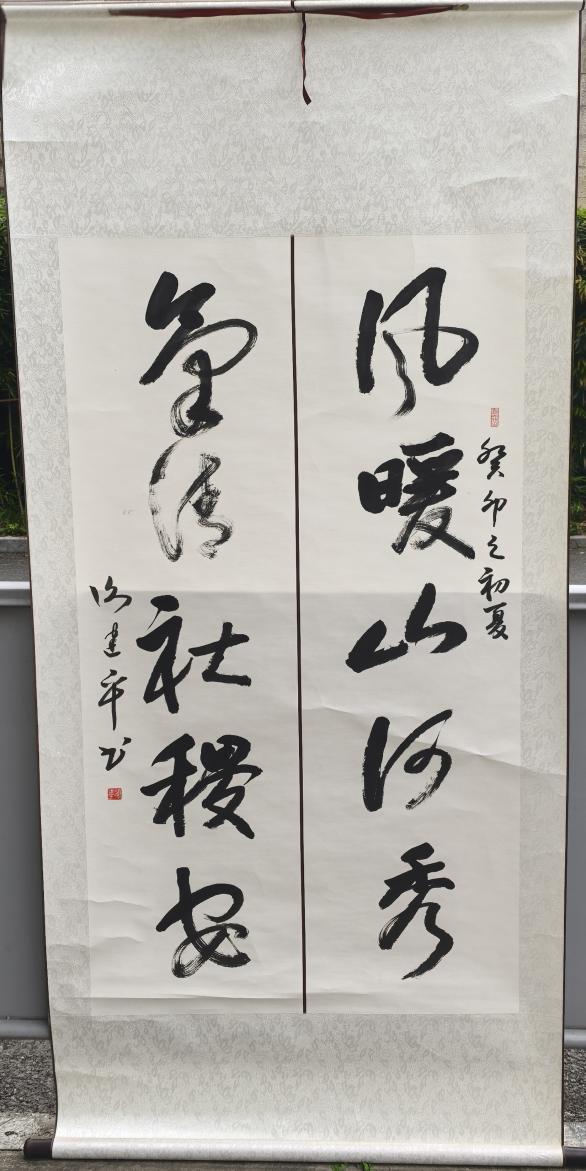 癸卯之初夏
风暖山河秀
氣清社稷安
建平书